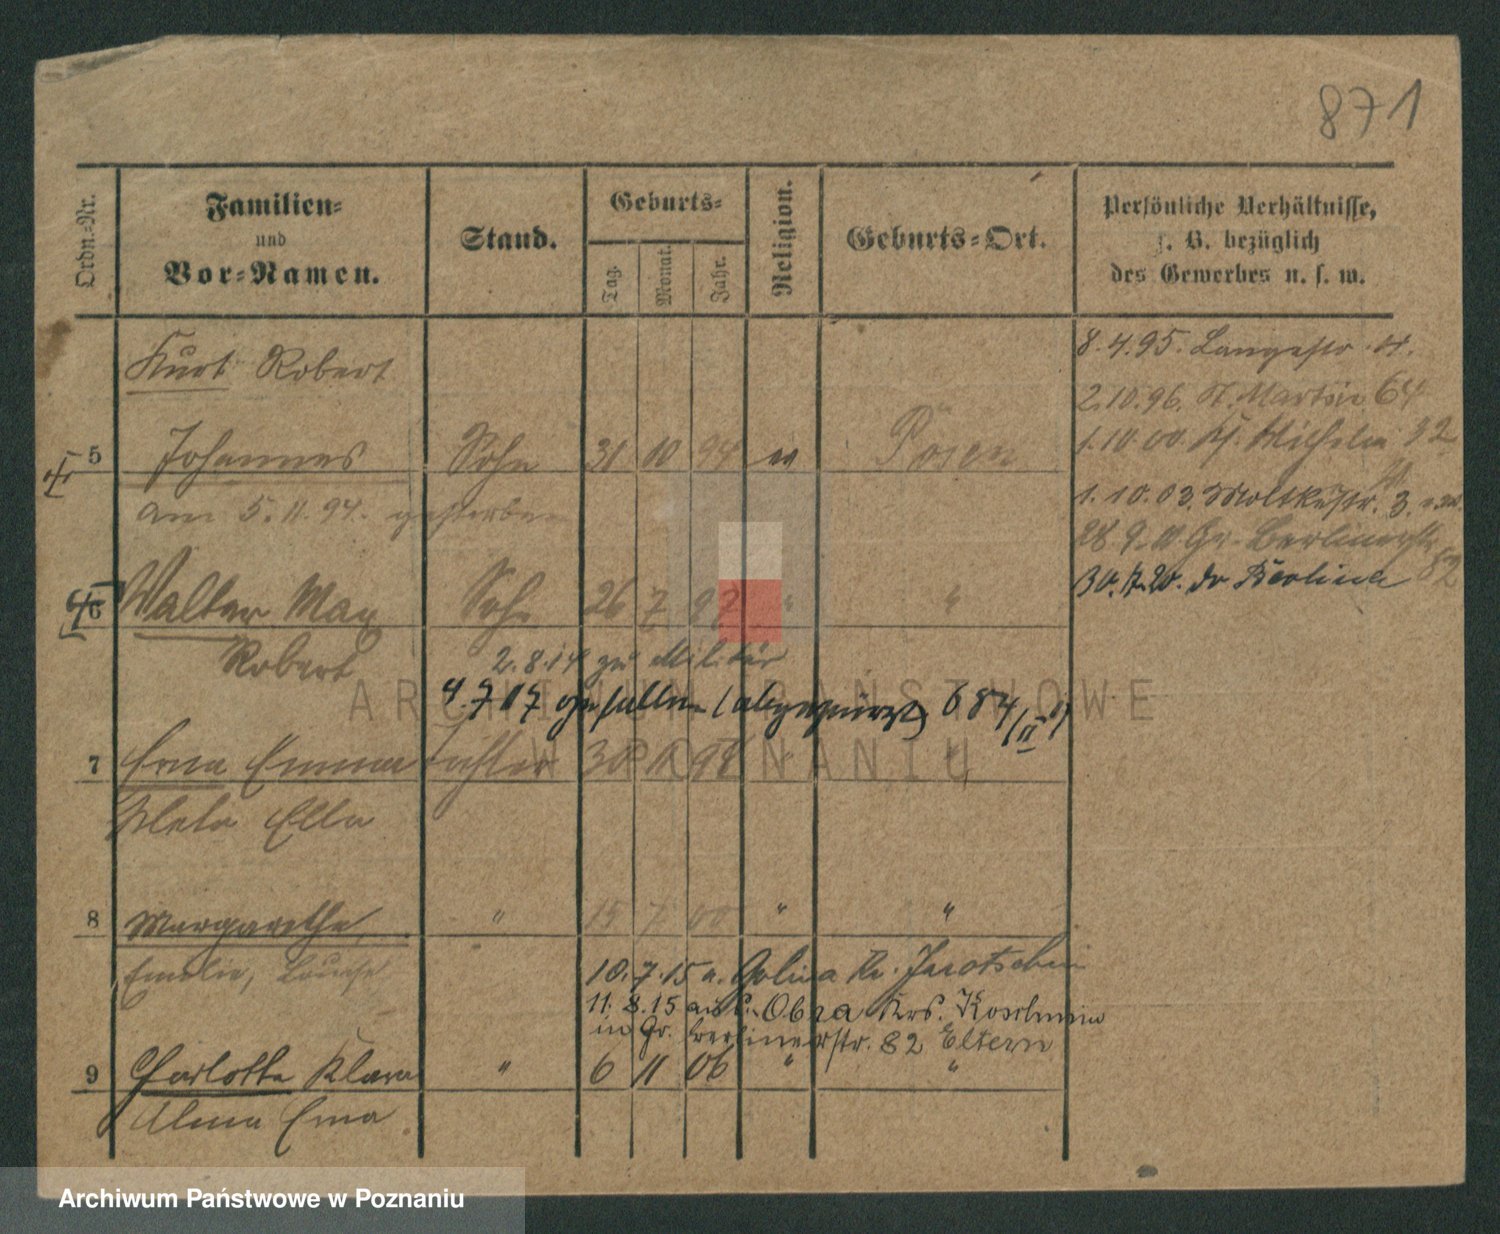 871
Ordn.-Nr.
Familien-
und
Vor-Namen.
Stand.
Geburts-
Tag.
Monat.
Jahr.
Religion.
Geburts-Ort.
Persönliche Verhältnisse,
z. B. bezüglich
des Gewerbes u. s. w.
Kurt Robert
8.4.95. Langestr.
2.10.96. St. Martin 64
5 Johannes Sohn 31 10 94 Posen
1.10.00. Wilhelm
am 5.11.94. gestorben
1.10.03. Moltkestr. 3.
28 9. 11 Gr. Berlinerstr. 82
6 Walter Max Sohn 26 7 97 " "
30. 7. 20. Berlin
Robert
2.8.14 zu Militär
4.7 17 gefallen 684/II
7 Erna Emma Tochter 30 11 98 " "
Meta Ella
8 Margarethe, " 15 7 00 " "
Emilie, Louise
10.7.15 n. Golina Kr. Jarotschin
11.8.15 aus Obra Krs. Koschmin
in Gr. Berlinerstr. 82 Eltern
9 Charlotte Klara " 6 11 06 " "
Alma Erna
ARCHIWUM PAŃSTWOWE
W POZNANIU
Archiwum Państwowe w Poznaniu